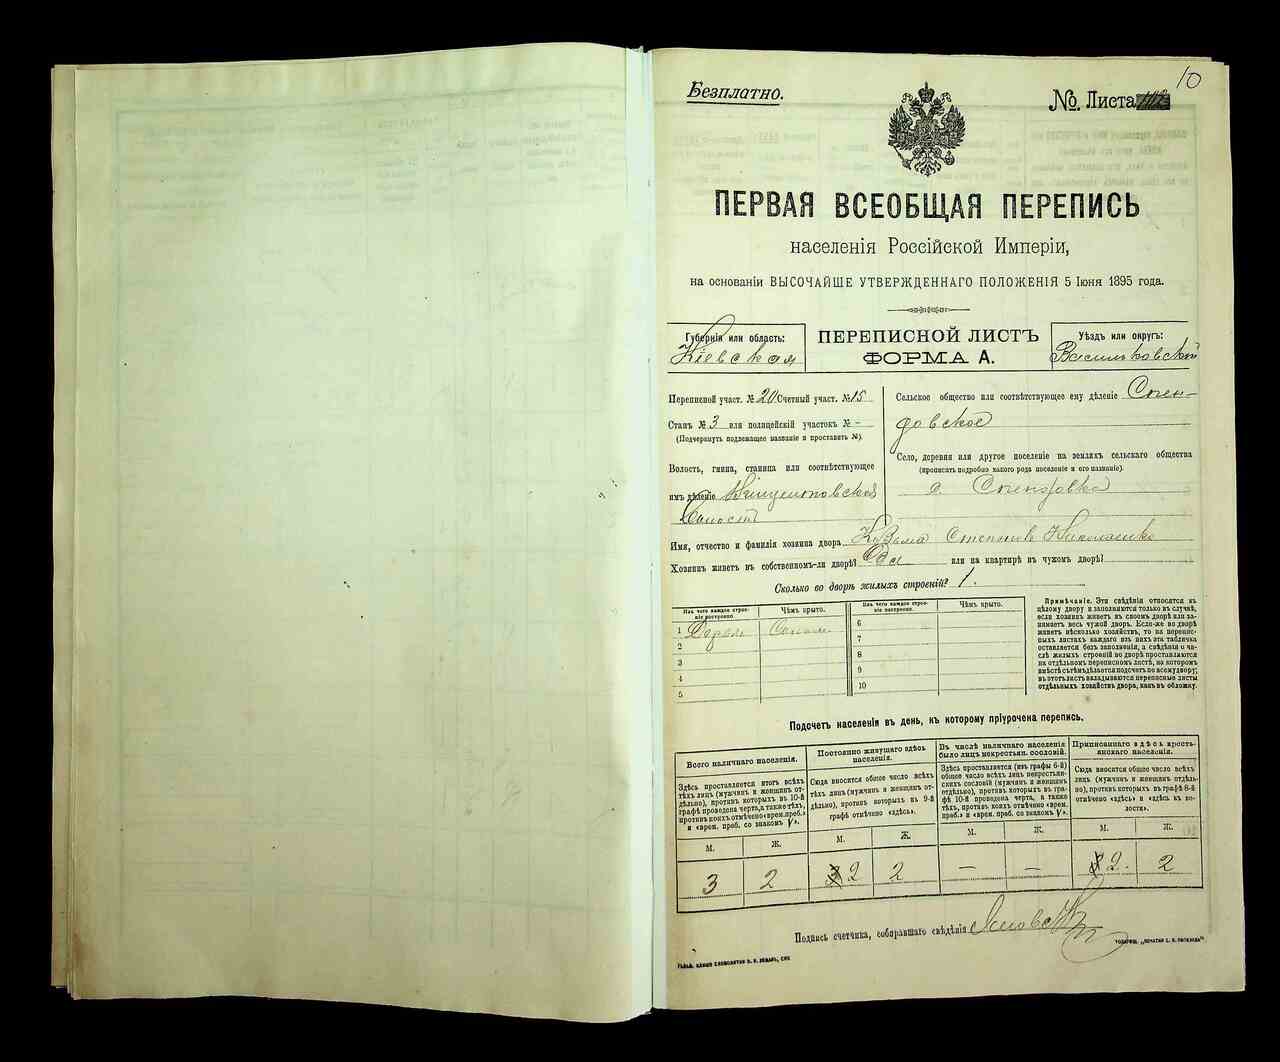 10
Безплатно.
№. Листа 102
ПЕРВАЯ ВСЕОБЩАЯ ПЕРЕПИСЬ
населенія Россійской Имперіи,
на основаніи ВЫСОЧАЙШЕ УТВЕРЖДЕННАГО ПОЛОЖЕНІЯ 5 Іюня 1895 года.
Губернія или область:
Кіевская
ПЕРЕПИСНОЙ ЛИСТЪ
ФОРМА А.
Уѣздъ или округъ:
Васильковской
Переписной участ. № 20 Счетный участ. № 15
Станъ № 3 или полицейскій участокъ № -
(Подчеркнуть подлежащее названіе и проставить №).
Волость, гмина, станица или соотвѣтствующее
имъ дѣленіе
Волость
Сельское общество или соотвѣтствующее ему дѣленіе
Село, деревня или другое поселеніе на земляхъ сельскаго общества
(прописать подробно какого рода поселеніе и его названіе).
Имя, отчество и фамилія хозяина двора Козьма Степановъ Николаенко
Хозяинъ живетъ въ собственномъ-ли дворѣ? Да или на квартирѣ въ чужомъ дворѣ?
Сколько во дворѣ жилыхъ строеній? 1.
Изъ чего каждое строеніе построено.
Чѣмъ крыто.
Изъ чего каждое строеніе построено.
Чѣмъ крыто.
1 6
2 7
3 8
4 9
5 10
Примѣчаніе. Эти свѣдѣнія относятся къ
цѣлому двору и заполняются только въ случаѣ,
если хозяинъ живетъ въ своемъ дворѣ или за-
нимаетъ весь чужой дворъ. Если-же во дворѣ
живетъ нѣсколько хозяйствъ, то на перепис-
ныхъ листахъ каждаго изъ нихъ эта табличка
оставляется безъ заполненія, а свѣдѣнія о чи-
слѣ жилыхъ строеній во дворѣ проставляются
на отдѣльномъ переписномъ листѣ, на которомъ
вмѣстѣ съ тѣмъ дѣлается подсчетъ по всему двору;
въ этотъ листъ вкладываются переписные листы
отдѣльныхъ хозяйствъ двора, какъ въ обложку.
Подсчетъ населенія въ день, къ которому пріурочена перепись.
Всего наличнаго населенія.
Здѣсь проставляется итогъ всѣхъ
лицъ (мужчинъ и женщинъ от-
дѣльно), противъ которыхъ въ 10-й
графѣ проведена черта, а также тѣхъ,
противъ коихъ отмѣчено «врем. преб.»
и «врем. преб. со знакомъ V».
М. Ж.
3 2
Постоянно живущаго здѣсь
населенія.
Сюда вносится общее число всѣхъ
тѣхъ лицъ (мужчинъ и женщинъ от-
дѣльно), противъ которыхъ въ 9-й
графѣ отмѣчено «здѣсь».
М. Ж.
3 2 2
Въ числѣ наличнаго населенія
было лицъ некрестьян. сословій.
Здѣсь проставляется (изъ графы 6-й)
общее число всѣхъ лицъ некрестьян-
скихъ сословій (мужчинъ и женщинъ
отдѣльно), противъ которыхъ въ гра-
фѣ 10-й проведена черта, а также
тѣхъ, противъ коихъ отмѣчено «врем.
преб.» и «врем. преб. со знакомъ V».
М. Ж.
— —
Приписаннаго здѣсь кресть-
янскаго населенія.
Сюда вносится общее число всѣхъ
лицъ (мужчинъ и женщинъ отдѣль-
но), противъ которыхъ въ графѣ 8-й
отмѣчено «здѣсь» и «здѣсь въ во-
лости».
М. Ж.
2. 2
Подпись счетчика, собиравшаго свѣдѣнія